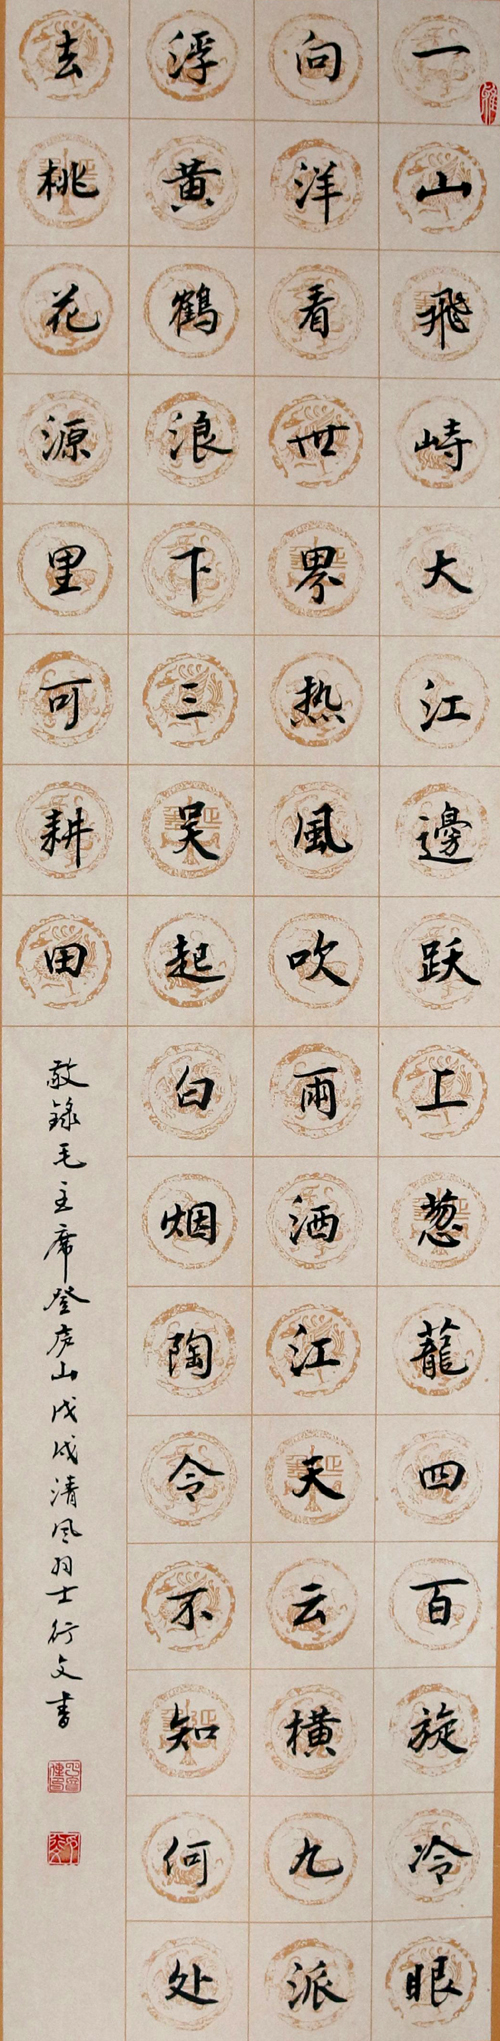 一山飛峙大江邊跃上葱蘢四百旋冷眼
向洋看世界热風吹雨洒江天云橫九派
浮黄鶴浪下三吴起白烟陶令不知何处
去桃花源里可耕田
敬錄毛主席登庐山戊戌清风羽士行文書